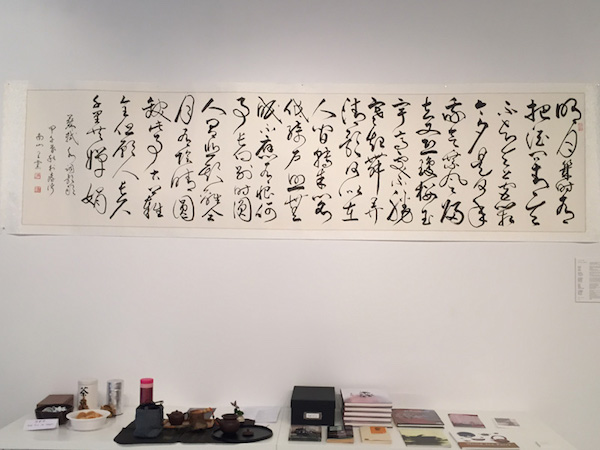 明月幾時有
把酒問青天
不知天上宮闕
今夕是何年
我欲乘風歸
去又恐瓊樓玉
宇高處不勝
寒起舞弄
清影何似在
人間轉朱閣
低綺戶照無
眠不應有恨何
事長向別時圓
人有悲歡離合
月有陰晴圓
缺此事古難
全但願人長久
千里共嬋娟
蘇軾水調歌頭
甲午
南山